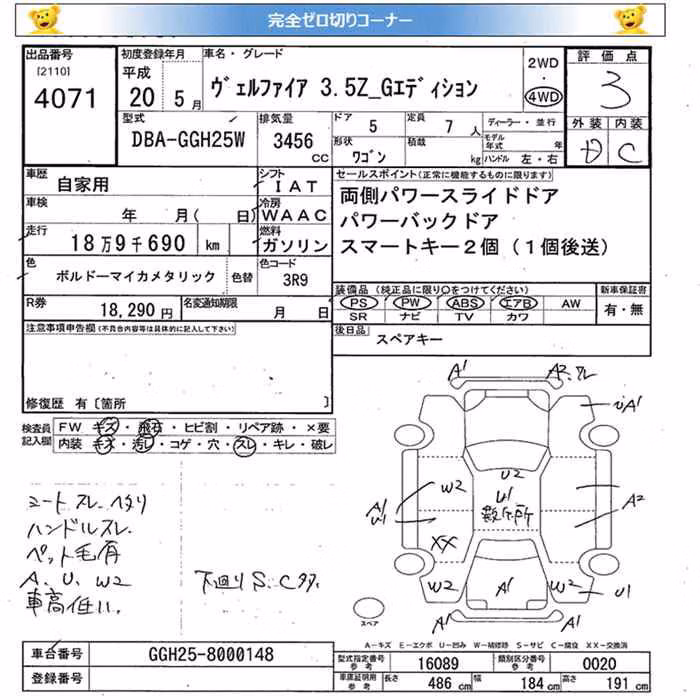 完全ゼロ切りコーナー
出品番号 初度登録年月 車名・グレード 2WD ・ 4WD 評価点
[2110] 4071 平成 20年 5月 ヴェルファイア 3.5Z_Gエディション 3
型式 排気量 ドア 5 定員 7 人 ディーラー・並行 外装 内装
DBA-GGH25W 3456 cc 形状 ワゴン 積載 kg モデル年式 年 ハンドル 左・右 D C
車歴 自家用 シフト IAT セールスポイント(正常に機能するものに限ります)
車検 年 月( 日) 冷房 WAAC 両側パワースライドドア
走行 18万9千690 km 燃料 ガソリン パワーバックドア
スマートキー2個(1個後送)
色 ボルドーマイカメタリック 色替 色コード 3R9
装備品(純正品に限り○をつけてください) 新車保証書
PS PW ABS エアB AW 有・無
SR ナビ TV カワ
R券 18,290円 名変通知期限 月 日
注意事項申告欄(不具合内容等は具体的に記入して下さい) 後日品 スペアキー
修復歴 有〔箇所 〕
検査員記入欄 FW キズ・飛石・ヒビ割・リペア跡・×要
内装 キズ・汚レ・コゲ・穴・スレ・キレ・破レ
シートスレ、ヘタリ
ハンドルスレ
ペット毛有
A、U、W2
車高低い。
下廻りS、C多
A1 A2、スレ
UA1
W2 U2
A1 U1 U1 数ヶ所 A2
XX
W2 A1 W2 U1
A1 A1
スペア
A-キズ E-エクボ U-凹み W-補修跡 S-サビ C-腐食 XX-交換済
車台番号 GGH25-8000148 型式指定番号 参考 16089 類別区分番号 参考 0020
登録番号 車庫証明用 参考 長さ 486 cm 幅 184 cm 高さ 191 cm